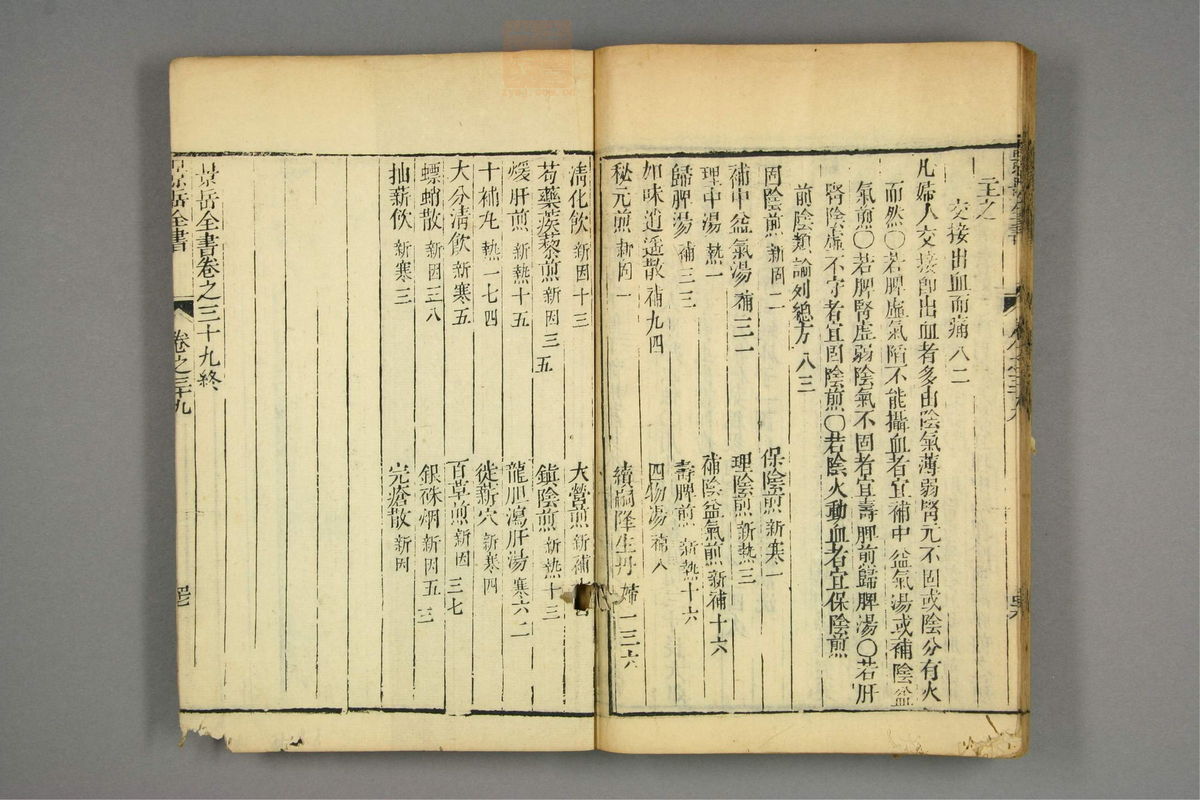 主之
交接出血而痛八二
凡婦人交接即出血者多由陰氣薄弱腎元不固或陰分有火
而然○若脾虛氣陷不能攝血者宜補中益氣湯或補陰益
氣煎○若脾腎虛弱陰氣不固者宜壽脾煎歸脾湯○若肝
腎陰虛不守者宜固陰煎○若陰火動血者宜保陰煎
前陰類論列總方八三
固陰煎新固二 保陰煎新寒一
補中益氣湯補三一 理陰煎新熱三
理中湯熱一 補陰益氣煎新補十六
歸脾湯補三三 壽脾煎新熱十六
加味逍遥散補九四 四物湯補八
秘元煎新固一 續嗣降生丹婦一三六
清化飲新因十三 大營煎新補
芍藥蒺藜煎新因三五 鎮陰煎新熱十三
煖肝煎新熱十五 龍胆瀉肝湯寒六二
十補丸熱一七四 徙薪穴新寒四
大分清飲新寒五 百草煎新因三七
螵蛸散新因三八 銀硃烟新因五三
抽薪飲新寒三 完瘡散新因
景岳全書卷之三十九終
景岳全書 卷之三十九